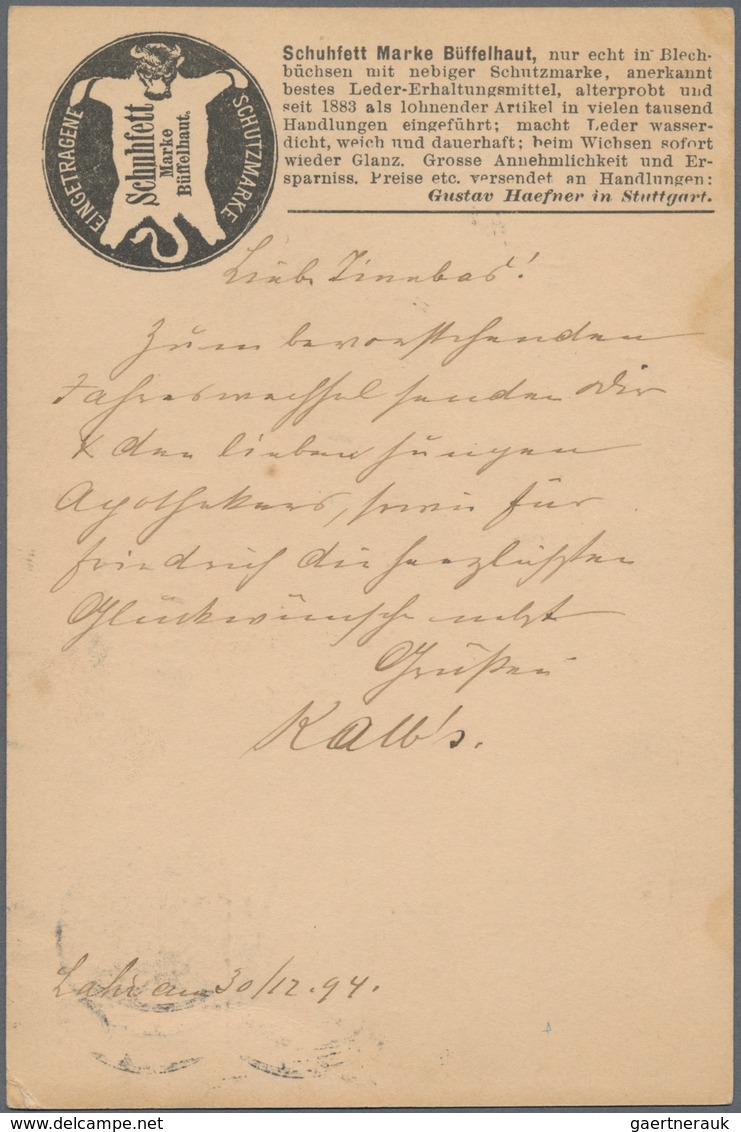 EINGETRAGENE SCHUTZMARKE
Schuhfett
Marke
Büffelhaut.
Schuhfett Marke Büffelhaut, nur echt in Blech-
büchsen mit nebiger Schutzmarke, anerkannt
bestes Leder-Erhaltungsmittel, alterprobt und
seit 1883 als lohnender Artikel in vielen tausend
Handlungen eingeführt; macht Leder wasser-
dicht, weich und dauerhaft; beim Wichsen sofort
wieder Glanz. Grosse Annehmlichkeit und Er-
sparniss. Preise etc. versendet an Handlungen:
Gustav Haefner in Stuttgart.
Liebe Tinebas!
Zum bevorstehenden
Jahreswechsel senden Dir
& den lieben jungen
Apothekers, sowie für
Friedrich die herzlichsten
Glückwünsche nebst
Grüßen
Kalb's.
Lahr am 30/12.94.
gaertnerauk
gaertnerauk